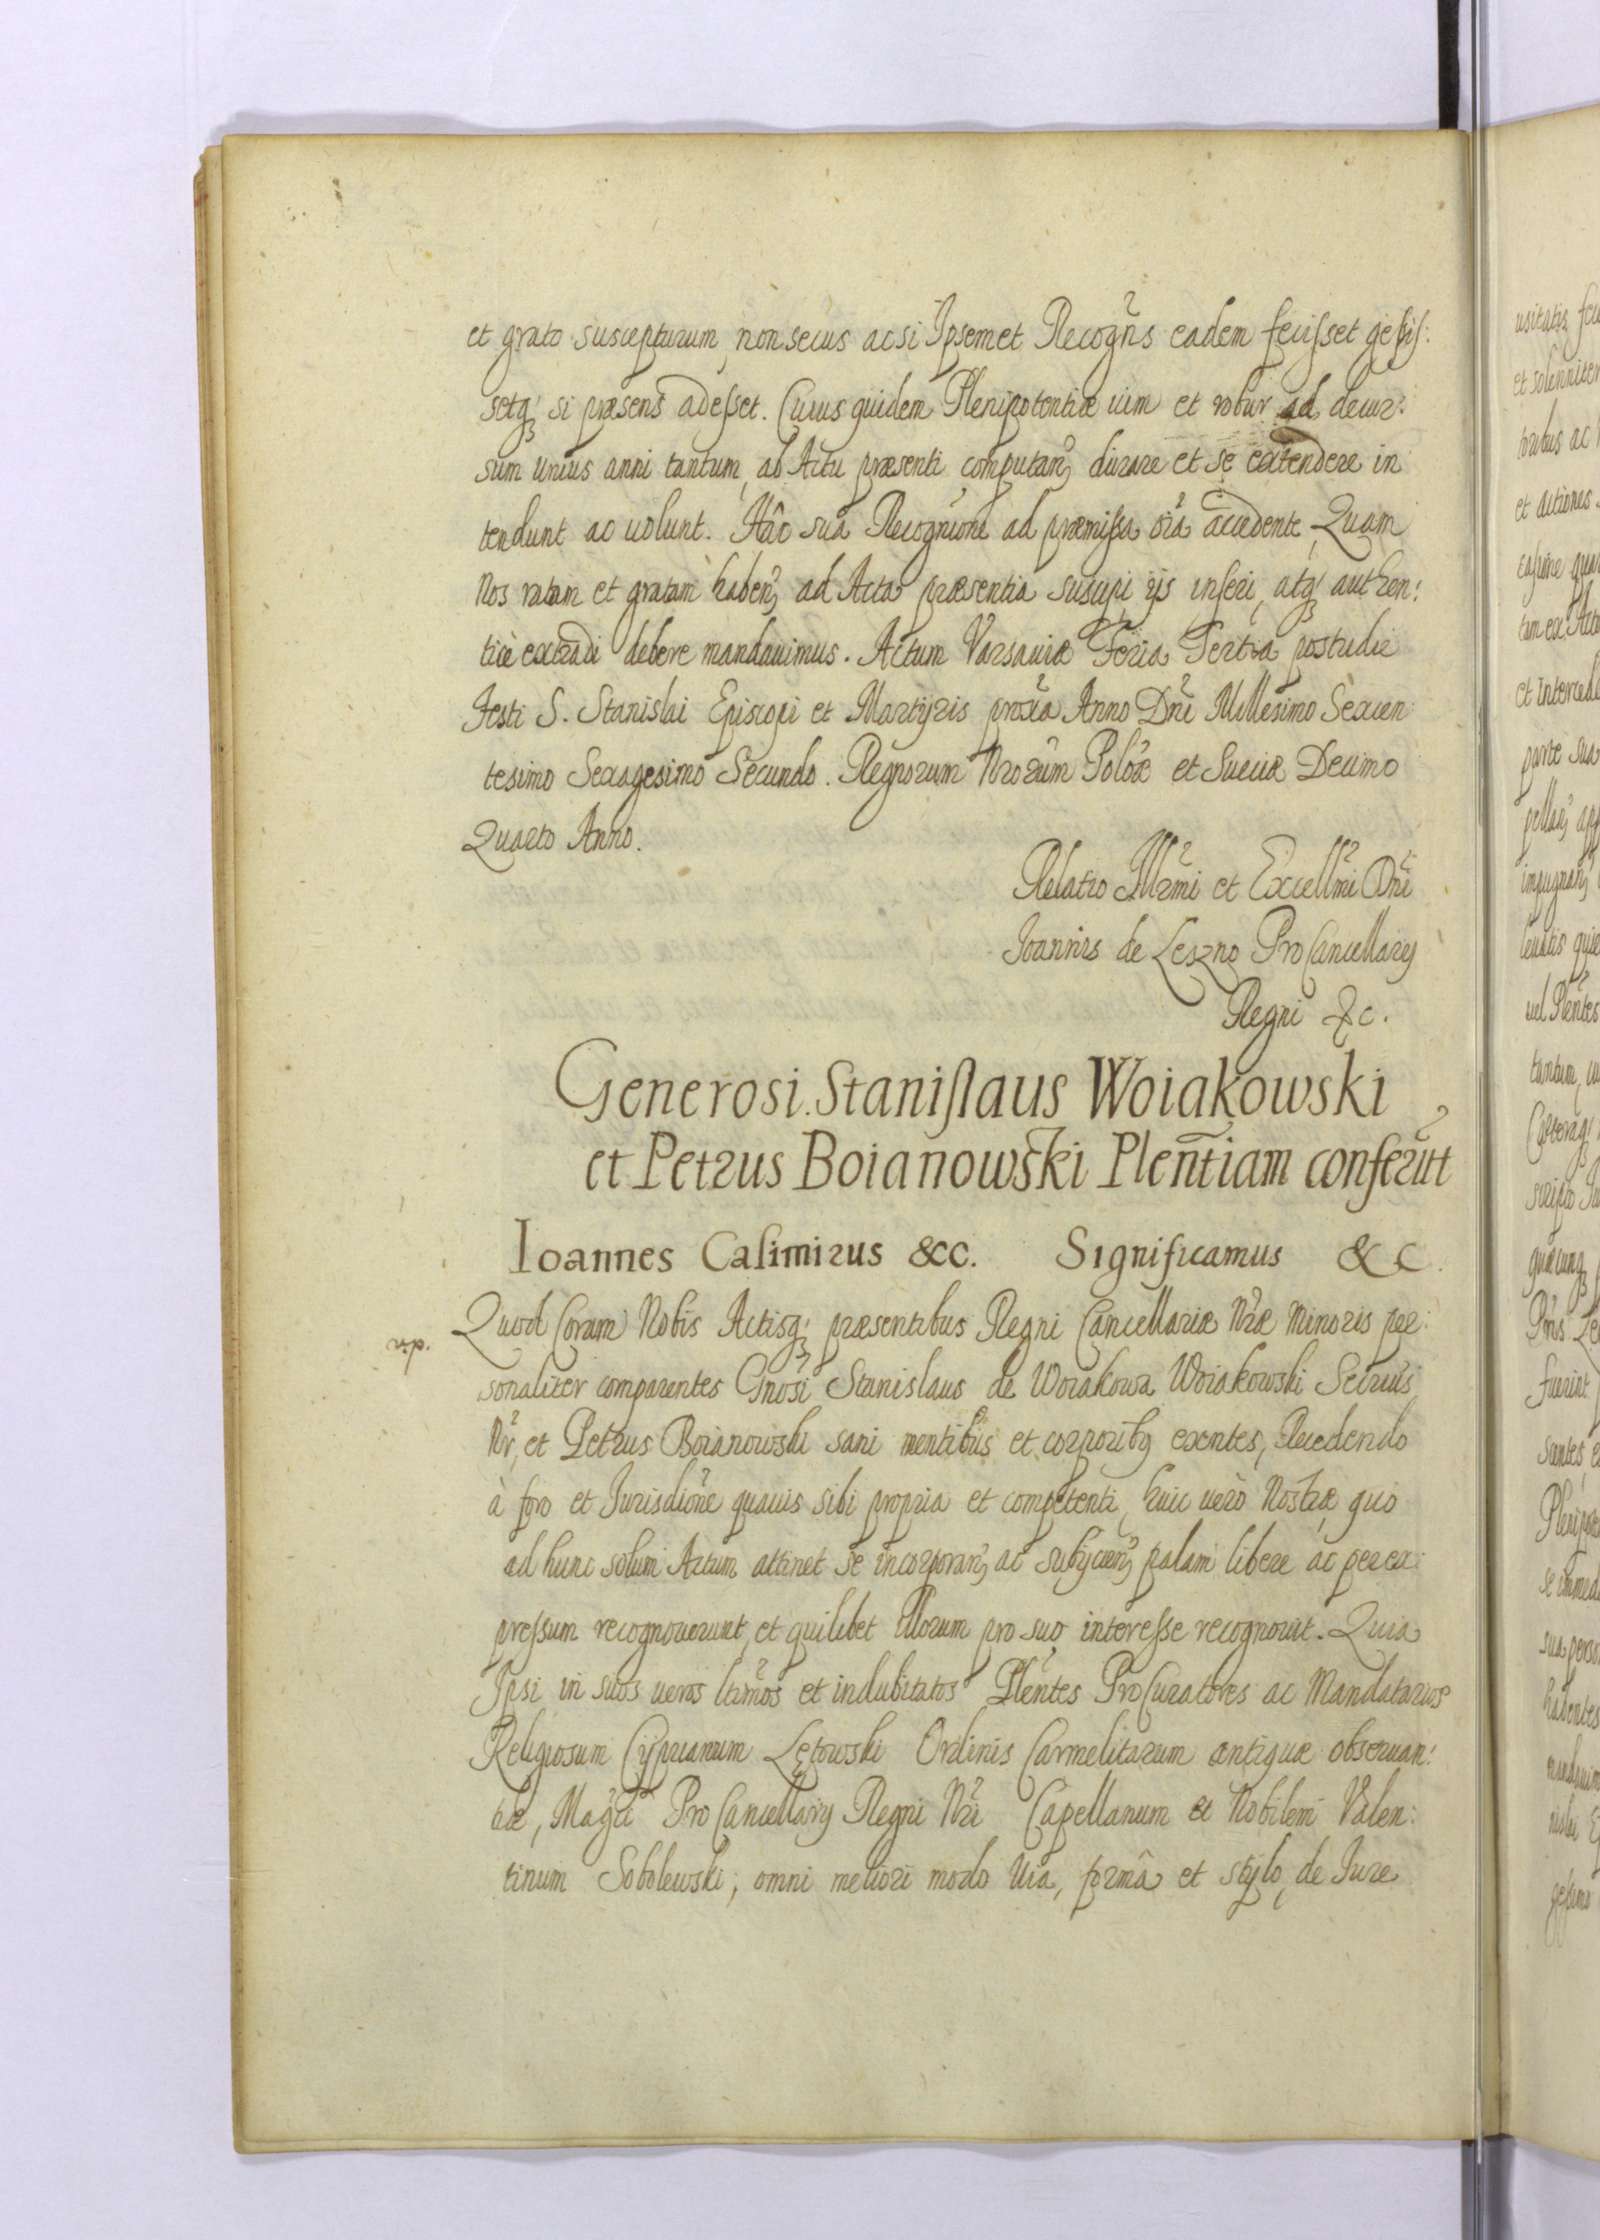 et grato suscepturum, non secus ac si Ipsemet Recogñs eadem fecisset gesis:
setq3 si præsens adesset. Cuius quidem Plenipotentiæ vim et robur ad decur:
sum unius anni tantum, ab Actu præsenti computan3 durare et se extendere in
tendunt ac volunt. Hâc suâ Recognitione ad præmissa oĩa accedente, Quam
Nos ratam et gratam haben3 ad Acta præsentia suscipi ijs inseri, atq3 authen:
ticè extradi debere mandavimus. Actum Varsaviæ Feria Tertia postridie
Festi S. Stanislai Episcopi et Martyris proxĩa Anno Dñi Millesimo Sexcen
tesimo Sexagesimo Secundo. Regnorum Nrorum Polõæ et Sueciæ Decimo
Quarto Anno.
Relatio Illr̃mi et Excellm̃i Dñi
Joannis de Leszno ProCancellarij
Regni &c.
Generosi Stanislaus Woiakowski
et Petrus Boianowski Plentiam conferũt
Ioannes Casimirus &cc. Significamus &c.
Quod Coram Nobis Actisq3 præsentibus Regni Cancellariæ Nr̃æ Minoris per:
sonaliter comparentes Gnõsi Stanislaus de Woiakowa Woiakowski Secr̃ius
Nr̃, et Petrus Boianowski sani mentibus et corporib9 exñtes, Recedendo
à foro et Jurisdiõne quavis sibi propria et competenti, huic verò Nostræ quo
ad hunc solum Actum attinet se incorporan3 ac subijcien3 palam libere ac per ex:
pressum recognoverunt, et quilibet illorum pro suo interesse recognovit. Quia
Ipsi in suos veros ltĩmos et indubitatos Plẽntes ProCuratores ac Mandatarios
Religiosum Cyprianum Lętowski Ordinis Carmelitarum antiquæ observan:
tiæ, Mag̃ci ProCancellarij Regni Nr̃i Capellanum et Nobilem Valen:
tinum Sobolewski, omni meliori modo viâ, formâ et stylo, de Jure